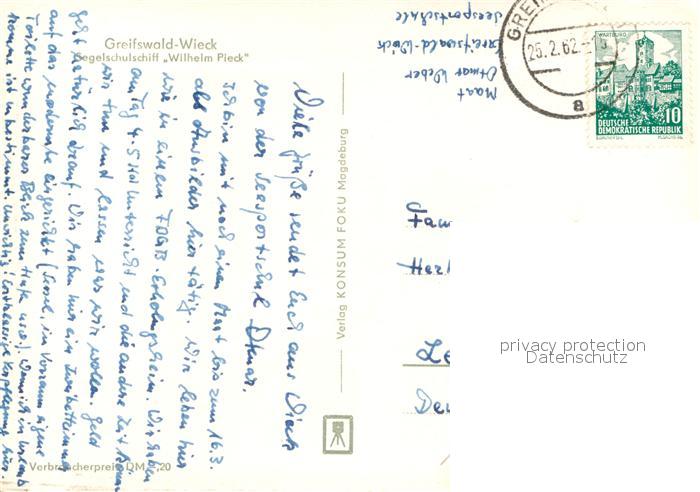 Greifswald-Wieck
Segelschulschiff „Wilhelm Pieck"
Viele Grüße sendet Euch aus Wieck
von der Seesportschule Otmar.
Ich bin mit noch einem Maat bis zum 16.3.
als Ausbilder hier tätig. Wir leben hier
wie in einem FDGB-Erholungsheim. Wir haben
am Tag 4-5 Std Unterricht und die andere Zeit können
wir tun und lassen was wir wollen. Geld
geht natürlich drauf. Wir haben hier ein Zweibettzimmer
auf das modernste eingerichtet (Sessel, im Vorraum eigene
Toilette wunderbarer Blick zum Hafen usw.). Urlaub
komme ist unbestimmt. Verpflegung hier.
Verbraucherpreis DM -,20
Verlag KONSUM FOKU Magdeburg
Maat
Otmar Weber
Greifswald-Wieck
Seesportschule
GREIF
25.2.62
a
WARTBURG
10
DEUTSCHE
DEMOKRATISCHE REPUBLIK
Fam
Her
Le
privacy protection
Datenschutz